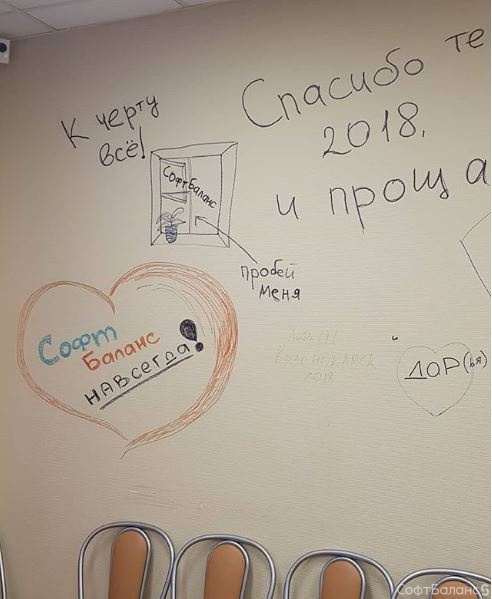 К черту
всё!
Спасибо те
2018,
и проща
СофтБаланс
пробей
меня
Софт
Баланс
навсегда!
и
КРАСНОКАМСК
2018
ДОР(ья)
СофтБаланс